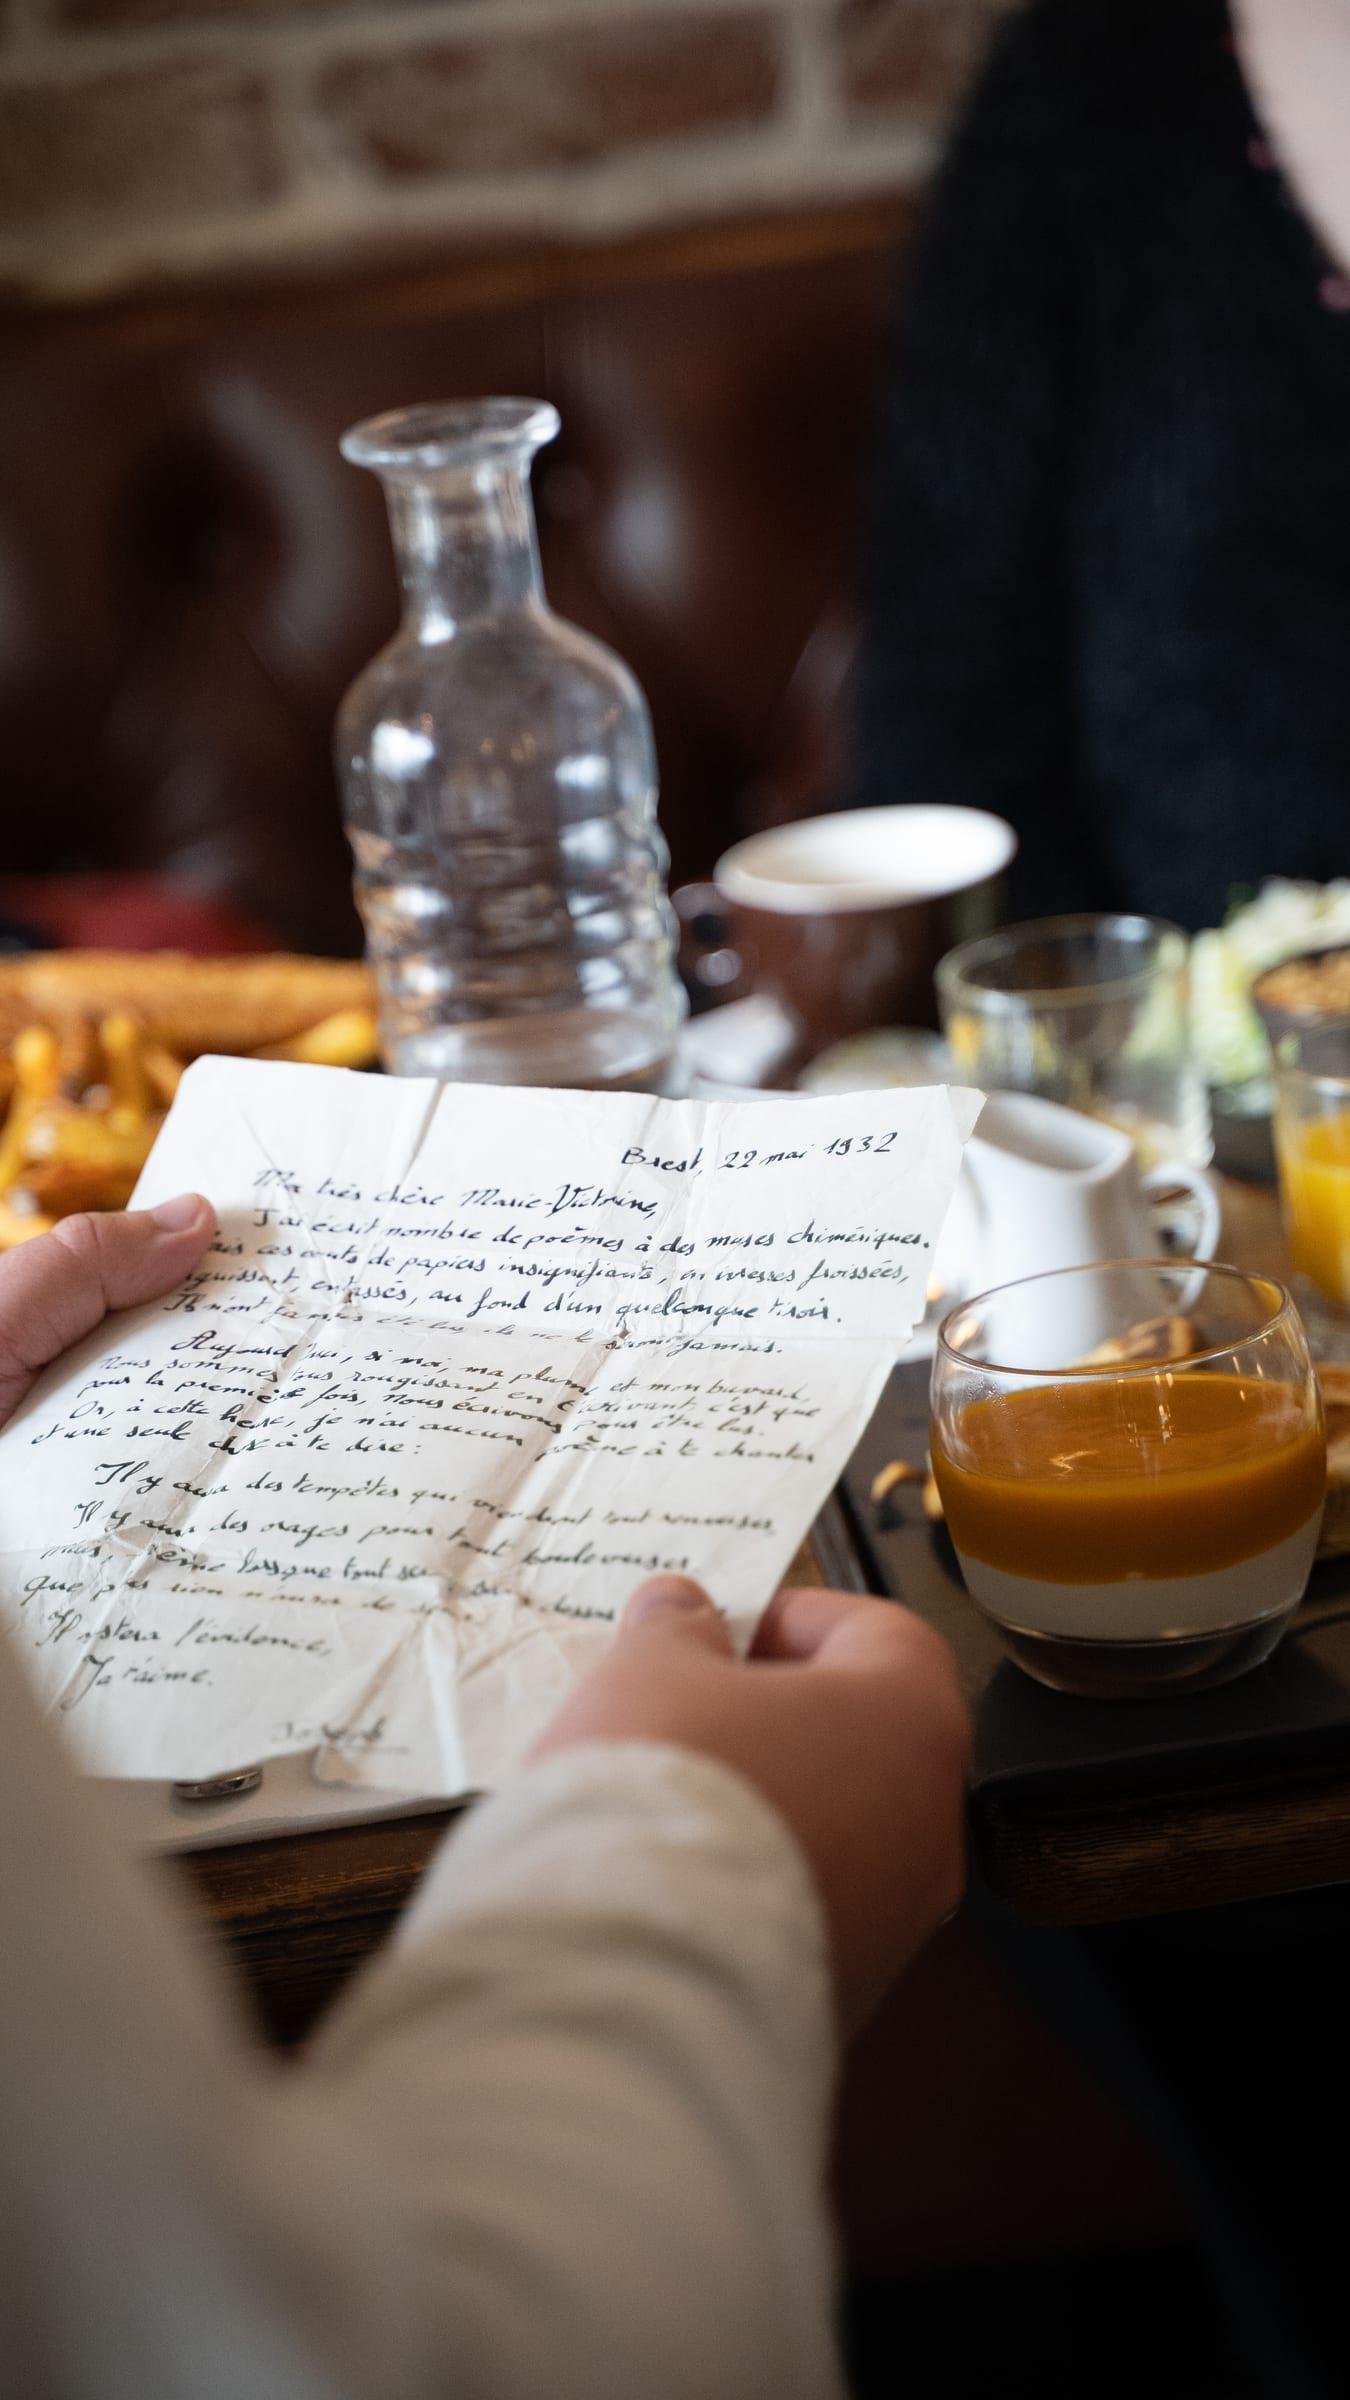 Brest, 22 mai 1932
Ma très chère Marie-Victoine,
J'ai écrit nombre de poèmes à des muses chimériques.
ces bouts de papiers insignifiants, en ivresses froissées,
entassés, au fond d'un quelconque tiroir.
Ils n'ont jamais été lus, ils ne le seront jamais.
Aujourd'hui, si moi, ma plume et mon buvard,
Nous sommes tous rougissant en t'écrivant, c'est que
pour la première fois, nous écrivons pour être lus.
Or, à cette heure, je n'ai aucun poème à te chanter
et une seule chose à te dire :
Il y aura des tempêtes qui viendront tout renverser,
Il y aura des orages pour tout bouleverser,
mais, même lorsque tout sera sens dessus
que plus rien n'aura de sens
Il restera l'évidence,
Je t'aime.
Joseph